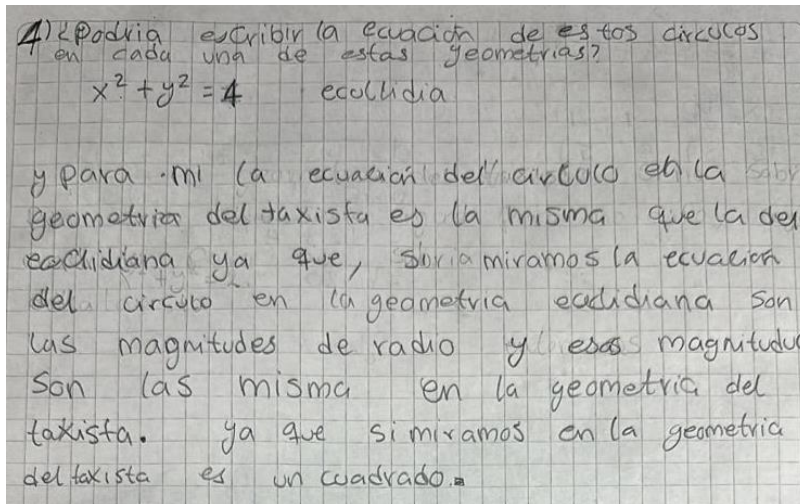 4) ¿Podria escribir la ecuación de estos circucos
en cada una de estas geometrias?
x² + y² = 4 ecuclidia
y para mi la ecuación del circulo en la
geometria del taxista es la misma que la de
euclidiana ya que, miramos la ecuación
del circulo en la geometria euclidiana son
las magnitudes de radio y esas magnitudes
son las misma en la geometria del
taxista. ya que si miramos en la geometria
del taxista es un cuadrado.